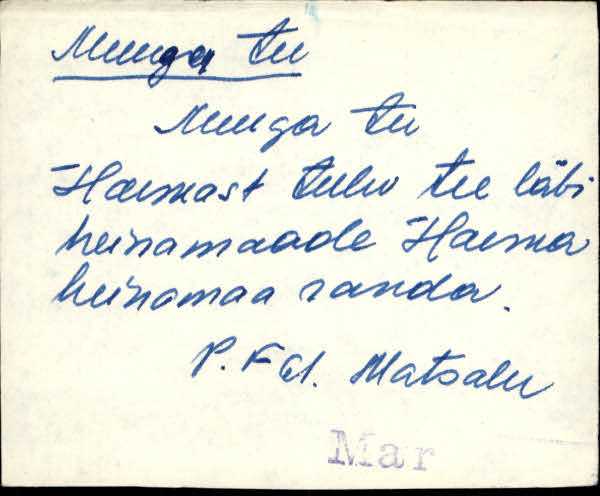 Muuga tee
Muuga tee
Haemast tulev tee läbi
heinamaade Haema
heinamaa randa.
Matsalu
Mar